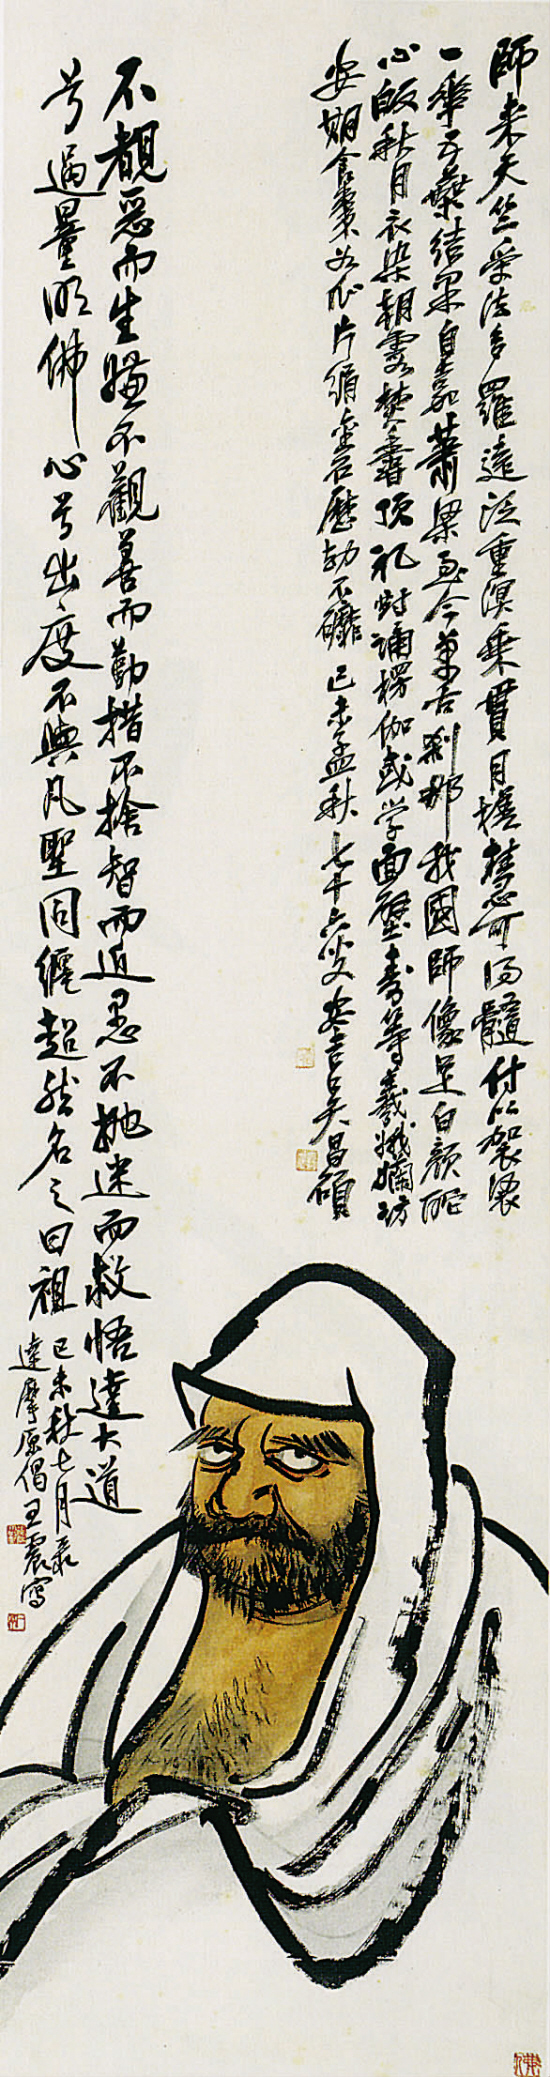 師來天竺受法多羅遠泛重溟乘貫月槎慧可得髓付以袈裟
一華五葉結果自嘉蕭梁至今萬古剎那我國師像足白顏酡
心皈秋月衣染朝霞焚香頂禮時誦楞伽或學面壁壽等羲媧嫻訪
安期食棗如瓜片綃金石歷劫不磨己未孟秋七十六叟安吉吳昌碩
不覩惡而生嫌不觀善而勤措不捨智而近愚不拋迷而救悟達大道
兮過量明佛心兮出度不與凡聖同纏超然名之曰祖
己未秋七月录
達摩原偈王震寫